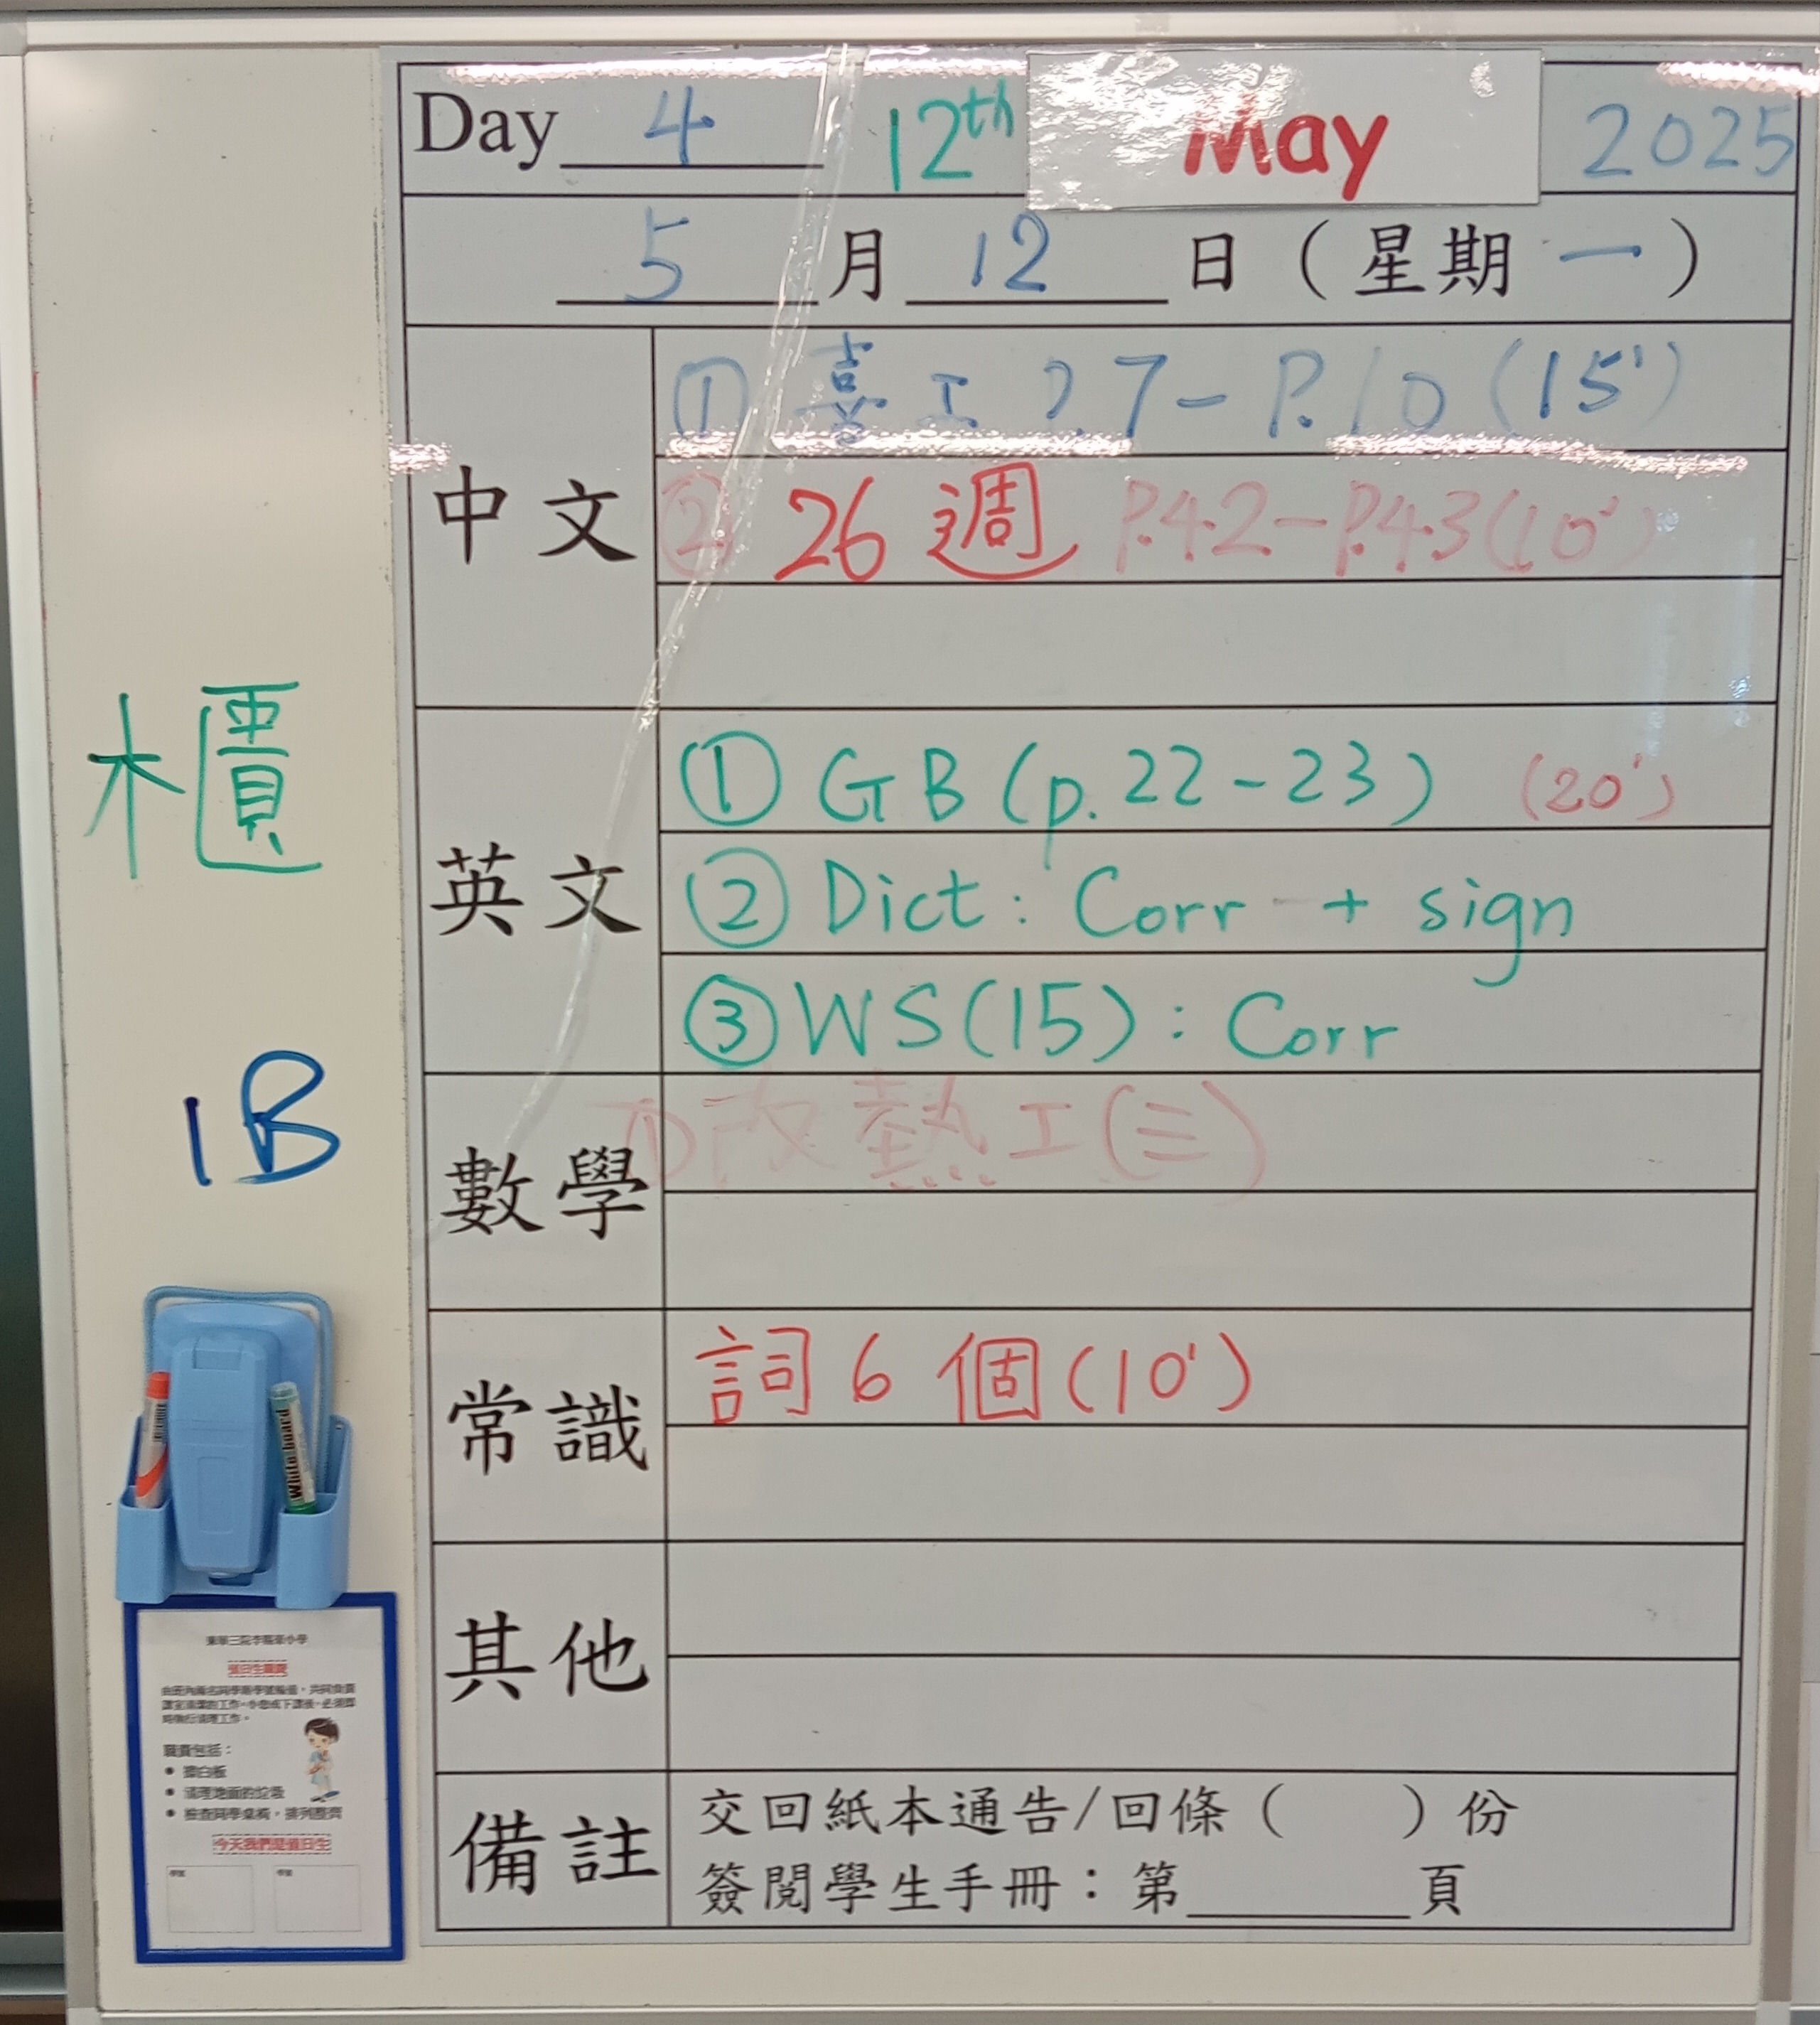 Day 4 12th May 2025
5 月 12 日 ( 星期 一 )
中文
① 喜工 P.7-P.10 (15')
② 26 週 P.42-P.43 (10')
英文
① GB (p. 22-23) (20')
② Dict: Corr + sign
③ WS (15): Corr
數學
① 改熱工 (三)
常識
詞 6 個 (10')
其他
備註
交回紙本通告/回條 (    ) 份
簽閱學生手冊：第______頁
櫃
1B
Whiteboard
職責包括：
● 擦白板
● 清理地面的垃圾
● 檢查同學桌椅，排列整齊
今天我們是值日生